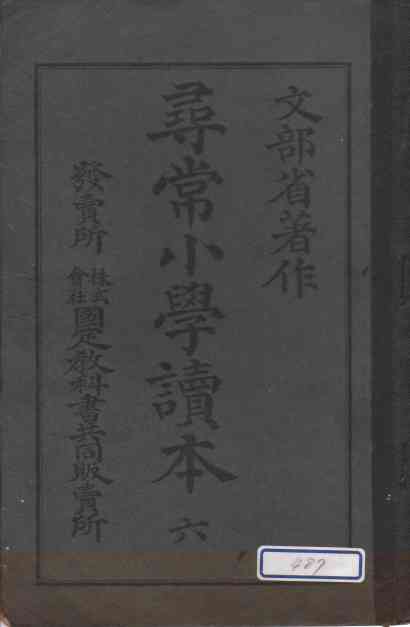 文部省著作
尋常小學讀本 六
發賣所 株式會社 國定教科書共同販賣所
487